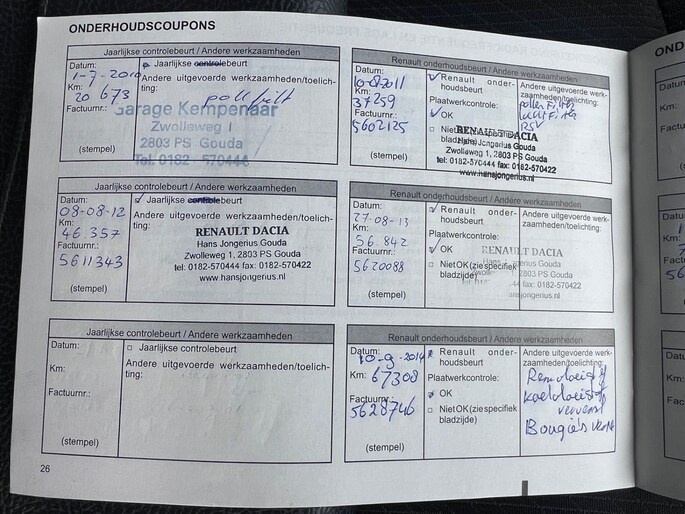 ONDERHOUDSCOUPONS
Jaarlijkse controlebeurt / Andere werkzaamheden
Datum:
1-7-2010
Km:
20 673
Factuurnr.:
(stempel)
Jaarlijkse controlebeurt
Andere uitgevoerde werkzaamheden/toelich-
ting:
pollfilt
Garage Kempenaar
Zwolleweg 1
2803 PS Gouda
Tel. 0182 - 570444
Renault onderhoudsbeurt / Andere werkzaamheden
Datum:
10-8-2011
Km:
37259
Factuurnr.:
5602125
(stempel)
Renault onder-
houdsbeurt
Plaatwerkcontrole:
OK
Niet OK (zie specifiek
bladzijde)
Andere uitgevoerde werk-
zaamheden/toelichting:
pollen Filter
lucht Filter
RSV
RENAULT DACIA
Hans Jongerius Gouda
Zwolleweg 1, 2803 PS Gouda
tel: 0182-570444 fax: 0182-570422
www.hansjongerius.nl
Jaarlijkse controlebeurt / Andere werkzaamheden
Datum:
08-08-12
Km:
46.357
Factuurnr.:
5611343
(stempel)
Jaarlijkse controlebeurt
Andere uitgevoerde werkzaamheden/toelich-
ting:
RENAULT DACIA
Hans Jongerius Gouda
Zwolleweg 1, 2803 PS Gouda
tel: 0182-570444 fax: 0182-570422
www.hansjongerius.nl
Renault onderhoudsbeurt / Andere werkzaamheden
Datum:
27-08-13
Km:
56.842
Factuurnr.:
5620088
(stempel)
Renault onder-
houdsbeurt
Plaatwerkcontrole:
OK
Niet OK (zie specifiek
bladzijde)
Andere uitgevoerde werk-
zaamheden/toelichting:
RENAULT DACIA
Hans Jongerius Gouda
Zwolleweg 1, 2803 PS Gouda
0182-570422
www.hansjongerius.nl
Jaarlijkse controlebeurt / Andere werkzaamheden
Datum:
Km:
Factuurnr.:
(stempel)
Jaarlijkse controlebeurt
Andere uitgevoerde werkzaamheden/toelich-
ting:
Renault onderhoudsbeurt / Andere werkzaamheden
Datum:
10-9-2014
Km:
67308
Factuurnr.:
5628746
(stempel)
Renault onder-
houdsbeurt
Plaatwerkcontrole:
OK
Niet OK (zie specifiek
bladzijde)
Andere uitgevoerde werk-
zaamheden/toelichting:
Remvloeistof
Koelvloeistof
ververst
Bougie's
26